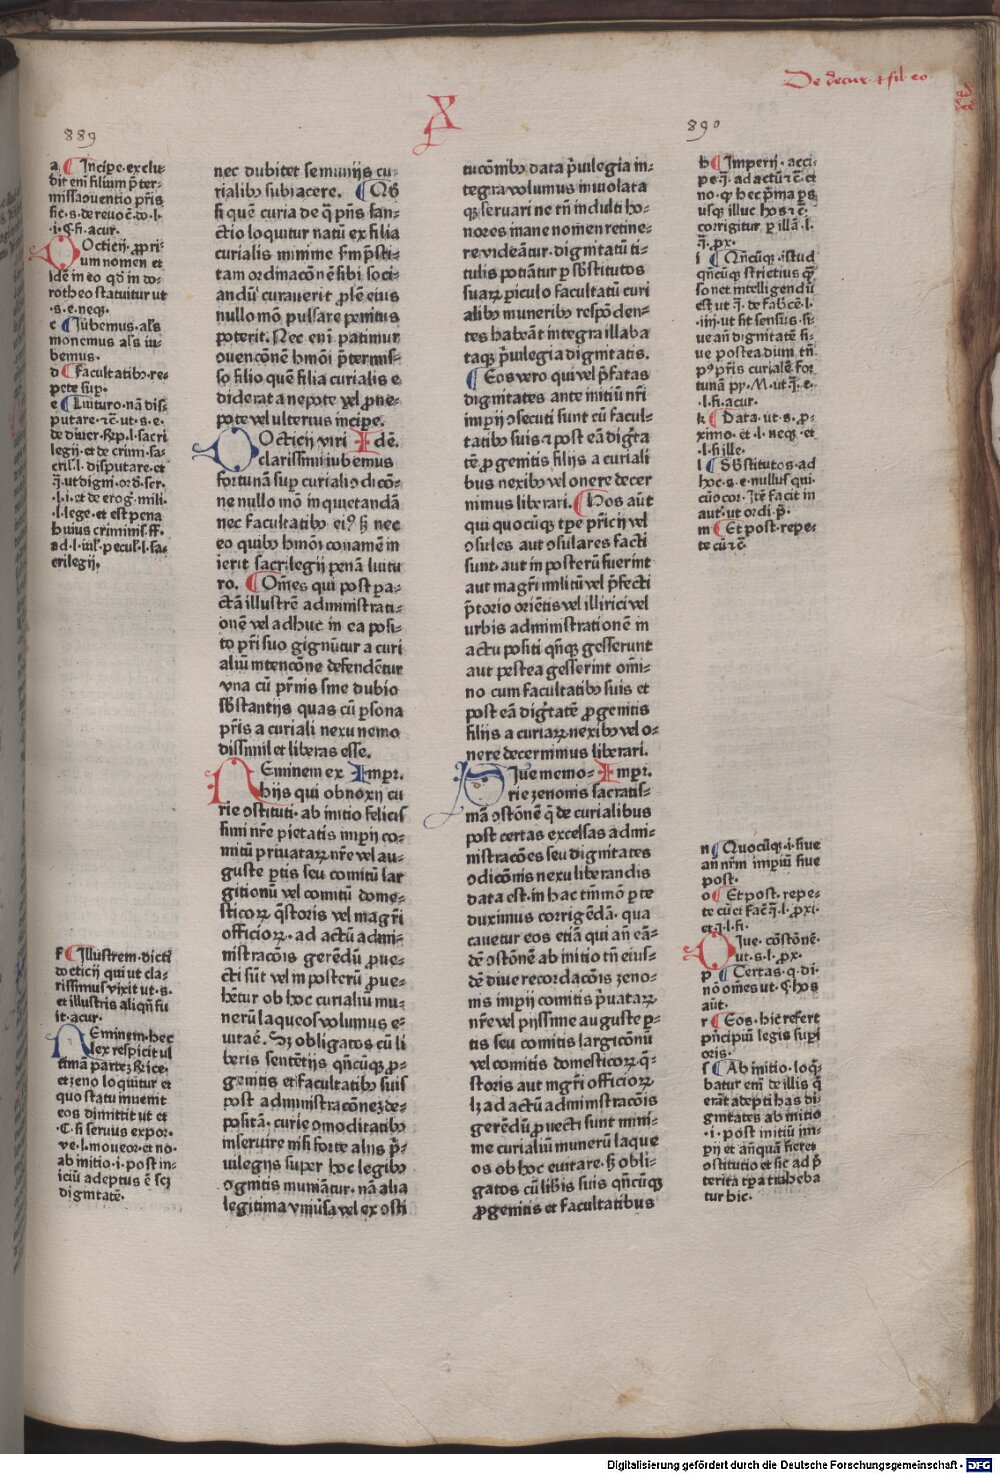 De decur · ⁊ fil eo
X
889
890
a ¶ Incipe· exclu⸗
dit enī filium p̄ter⸗
missa ꝯuentio pr̄is
sic ·s· de reuo c̄· do ·l·
·i· ꝯ fi· acur·
Octicij· ꝓpri⸗
um nomen et
idē in eo qd̄ in do⸗
rotheo statuitur ut
·s· e· neq̨·
c ¶ Iubemus· al's
monemus al's iu⸗
bemus·
d ¶ Facultatibꝫ· re⸗
pete sup̄·
e ¶ Luituro· nā dis⸗
putare· ⁊c̄· ut ·s· e·
de diuer· Rp̄· l· sacri
legij· et de crimi· sa⸗
cril· l· disputare· et
q̄· ut digni· or d̄· ser·
·l· i· et de erog̃· mili·
·l· lege· et est pena
huius criminis· ff·
ad ·l· iul'· pecul'· l· sa⸗
crilegij·
f ¶ Illustrem· dicti
docticij qui ut cla⸗
rissimus vixit ut ·s·
et illustris aliqn̄ fu
it· acur·
Neminem· hec
lex respicit ul
timā partez Rice·
et zeno loquitur et
quo statu inuenit
eos dimittit ut et
·C· si seruus expor·
ve· l· moueor· et no·
ab initio ·i· post in⸗
iciū adeptus ē scꝫ
dignitatē·
nec dubitet se munijs cu⸗
rialibꝫ subiacere. ¶ Ab
si quē curia de q̄ pn̄s san⸗
ctio loquitur natū ex filia
curialis minime s'm p̄sti⸗
tam ordinacōnē sibi soci⸗
andū curauerit ꝓlē eius
nullo mō pulsare penitus
poterit. Nec enī patimur
ꝯuencōnē hmōi p̄termis⸗
so filio quē filia curialis e
diderat a nepote vel ꝓne⸗
pote vel ulterius incipe.
Octicij viri Idē.
clarissimi iubemus
fortunā sup̄ curialis ꝯdicō⸗
ne nullo mō inquietandā
nec facultatibꝫ eiꝰ sꝫ nec
eo quibꝫ hmōi conamē in
ierit sacrilegij penā luitu
ro. ¶ Om̄es qui post pa⸗
ctā illustrē administrati⸗
onē vel adhuc in ea posi⸗
to pr̄i suo gignūtur a curi
aliū intencōne defendētur
vna cū pr̄nis sine dubio
sb̄stantijs quas cū ꝑsona
pr̄is a curiali nexu nemo
dissimil et liberas esse.
Neminem ex Impr̄.
hijs qui obnoxij cu
rie ꝯstituti· ab initio felicis
simi nr̄e pietatis imp̄ij co⸗
mitū priuatarꝫ nr̄e vel au⸗
guste ꝑtis seu comitū lar
gitionū vel comitū dome⸗
sticorꝫ q̄storis vel magr̄i
officiorꝫ· ad actū admi⸗
nistracōis gerēdū ꝓue⸗
cti sūt vel in posterū ꝓue⸗
hētur ob hoc curialiū mu⸗
nerū laqueos volumus e⸗
uitaē. Sꝫ obligatos cū li
beris sentētijs qn̄cūqꝫ ꝓ⸗
genitis et facultatibꝫ suis
post administracōneꝫ de⸗
positā· curie ꝯmoditatibꝫ
inseruire nisi forte alijs p̄⸗
uilegijs super hoc legibꝫ
ꝯgnitis muniātur· nā alia
legitima vniu'sa vel ex ꝯsti
tucōnibꝫ data p̄uilegia in⸗
tegra volumus inuiolata
qꝫ seruari ne tn̄ indulti ho⸗
nores mane nomen retine⸗
re videātur. dignitatū ti⸗
tulis potiātur ꝑ sb̄stitutos
suarꝫ ꝑiculo facultatū curi
alibꝫ muneribꝫ respōden⸗
tes habeāt integra illaba
taqꝫ p̄uilegia dignitatis.
¶ Eos vero qui vel p̄fatas
dignitates ante initiū nr̄i
imp̄ij ꝯsecuti sunt cū facul⸗
tatibꝫ suis ⁊ post eā dig̃ta
tē ꝓgenitis filijs a curiali
bus nexibꝫ vel onere decer
nimus liberari. ¶ Hos aūt
qui quocūqꝫ tꝑe pr̄icij vel
ꝯsules aut ꝯsulares facti
sunt· aut in posterū fuerint
aut magr̄i militū vel p̄fecti
p̄torio oriētis vel illirici vel
urbis administrationē in
actu positi qn̄qꝫ gesserunt
aut postea gesserint om̄i⸗
no cum facultatibꝫ suis et
post eā dig̃tatē ꝓgenitis
filijs a curiarꝫ nexibꝫ vel o⸗
nere decernimus liberari.
Diue memo⸗ Impr̄.
rie zenonis sacratis⸗
mā ꝯstōnē q̄ de curialibus
post certas excelsas admi⸗
nistracōes seu dignitates
ꝯdicōnis nexu liberandis
data est· in hac tn̄mō ꝑte
duximus corrigēdā· qua
cauetur eos etiā qui an̄ eā⸗
dē ꝯstōnē ab initio tn̄ eius⸗
dē diue recordacōis zeno⸗
nis imp̄ij comitis p̄uatarꝫ
nr̄e vel pijssime auguste ꝑ⸗
tis seu comitis largicōnū
vel comitis domesticorꝫ q̄⸗
storis aut mgr̄i officiorꝫ
lꝫ ad actū administracōis
gerēdū ꝓuecti sunt mini⸗
me curialiū munerū laque
os ob hoc euitare· sꝫ obli⸗
gatos cū lib̄is suis qn̄cūqꝫ
ꝓgenitis et facultatibus
h ¶ Imperij· acci⸗
pe q̄· ad actū ⁊c̄· et
no· ꝙ hec p̄ma ꝑs
usqꝫ illuc hos ⁊c̄·
corrigitur ꝑ illā ·l·
q̄· ꝓx·
i ¶ Qn̄cūqꝫ· istud
qn̄cūqꝫ strictius q̄
sonet intelligendū
est ut q̄· de fab̄cē· l·
·iiij· ut sit sensus· si⸗
ue an̄ dignitatē si⸗
ue postea dum tn̄
pꝰ pr̄is curialē for
tunā py· M· ut q̄· e·
·l· fi· acur·
k ¶ Data· ut ·s· ꝓ⸗
ximo· et ·l· neqꝫ· et
·l· si ille·
l ¶ Sb̄stitutos· ad
hoc ·s· e· nullus qui⸗
cūo cor· Itē facit in
aut'· ut ordi· p̄·
m ¶ Et post· repe⸗
te cū ⁊c̄·
n ¶ Quocūqꝫ ·i· siue
an̄ nr̄m impiū siue
post·
o ¶ Et post· repe⸗
te cū ei facē q̄· l· ꝓxi·
et q̄· l· fi·
Diue· cōstōnē·
ut ·s· l· ꝓx·
p ¶ Certas· q· di⸗
nō om̄es ut· ꝯ hos
aūt·
r ¶ Eos· hic refert
pn̄cipiū legis supi
oris·
s ¶ Ab initio· loq̄⸗
batur enī de illis q̄
erāt adepti has di⸗
gnitates ab initio
·i· post initiū im⸗
pij et an̄quā fieret
ꝯstitutio et sic ad p̄
terita tꝑa trahheba
tur hic·
Digitalisierung gefördert durch die Deutsche Forschungsgemeinschaft - DFG